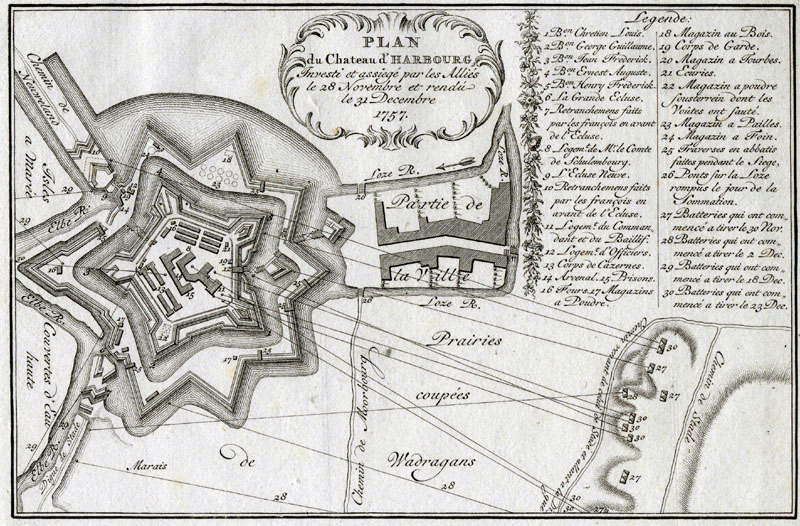 PLAN
du Chateau d'HARBOURG
Investi et assiegé par les Alliés
le 28 Novembre et rendu
le 31 Decembre
1757.
Legende:
1 B.on Chretien Louis.
2 B.on George Guillaume.
3 B.on Jean Frederick.
4 B.on Ernest Auguste.
5 B.on Henry Frederick.
6 La Grande Ecluse.
7 Retranchemens faits
par les françois en avant
de l'Ecluse.
8 Logem.t de M.r le Comte
de Schulembourg.
9 L'Ecluse Neuve.
10 Retranchemens faits
par les françois en
avant de l'Ecluse.
11 Logem.t du Comman_
dant et du Baillif.
12 Logem.t d'Officiers.
13 Corps de Cazernes.
14 Arcenal. 15 Prisons.
16 Fours. 17 Magazins
a Poudre.
18 Magazin au Bois.
19 Corps de Garde.
20 Magazin a Tourbes.
21 Ecuries.
22 Magazin a poudre
sousterrein dont les
Voûtes ont sauté.
23 Magazin a Pailles.
24 Magazin a Foin.
25 Traverses en abbatis
faites pendant le Siege.
26 Ponts sur la Loze
rompüs le jour de la
Sommation.
27 Batteries qui ont com_
mencé a tirer le 30 Nov.
28 Batteries qui ont com_
mencé a tirer le 2 Dec.
29 Batteries qui ont com_
mencé a tirer le 18 Dec.
30 Batteries qui ont com_
mencé a tirer le 23 Dec.
Chemin de
a Marée
Elbe R.
Loze R.
Loze R.
Partie de
la Ville
Loze R.
Elbe R.
Couvertes d'Eau
haute
Elbe R.
Digue de Stole
Marais
de
Prairies
coupées
Wadragans
Chemin de Moorbourg
Chemin de Stade
28
28
29
29
29
26
26
30
27
28
27
30
30
30
27
30
27